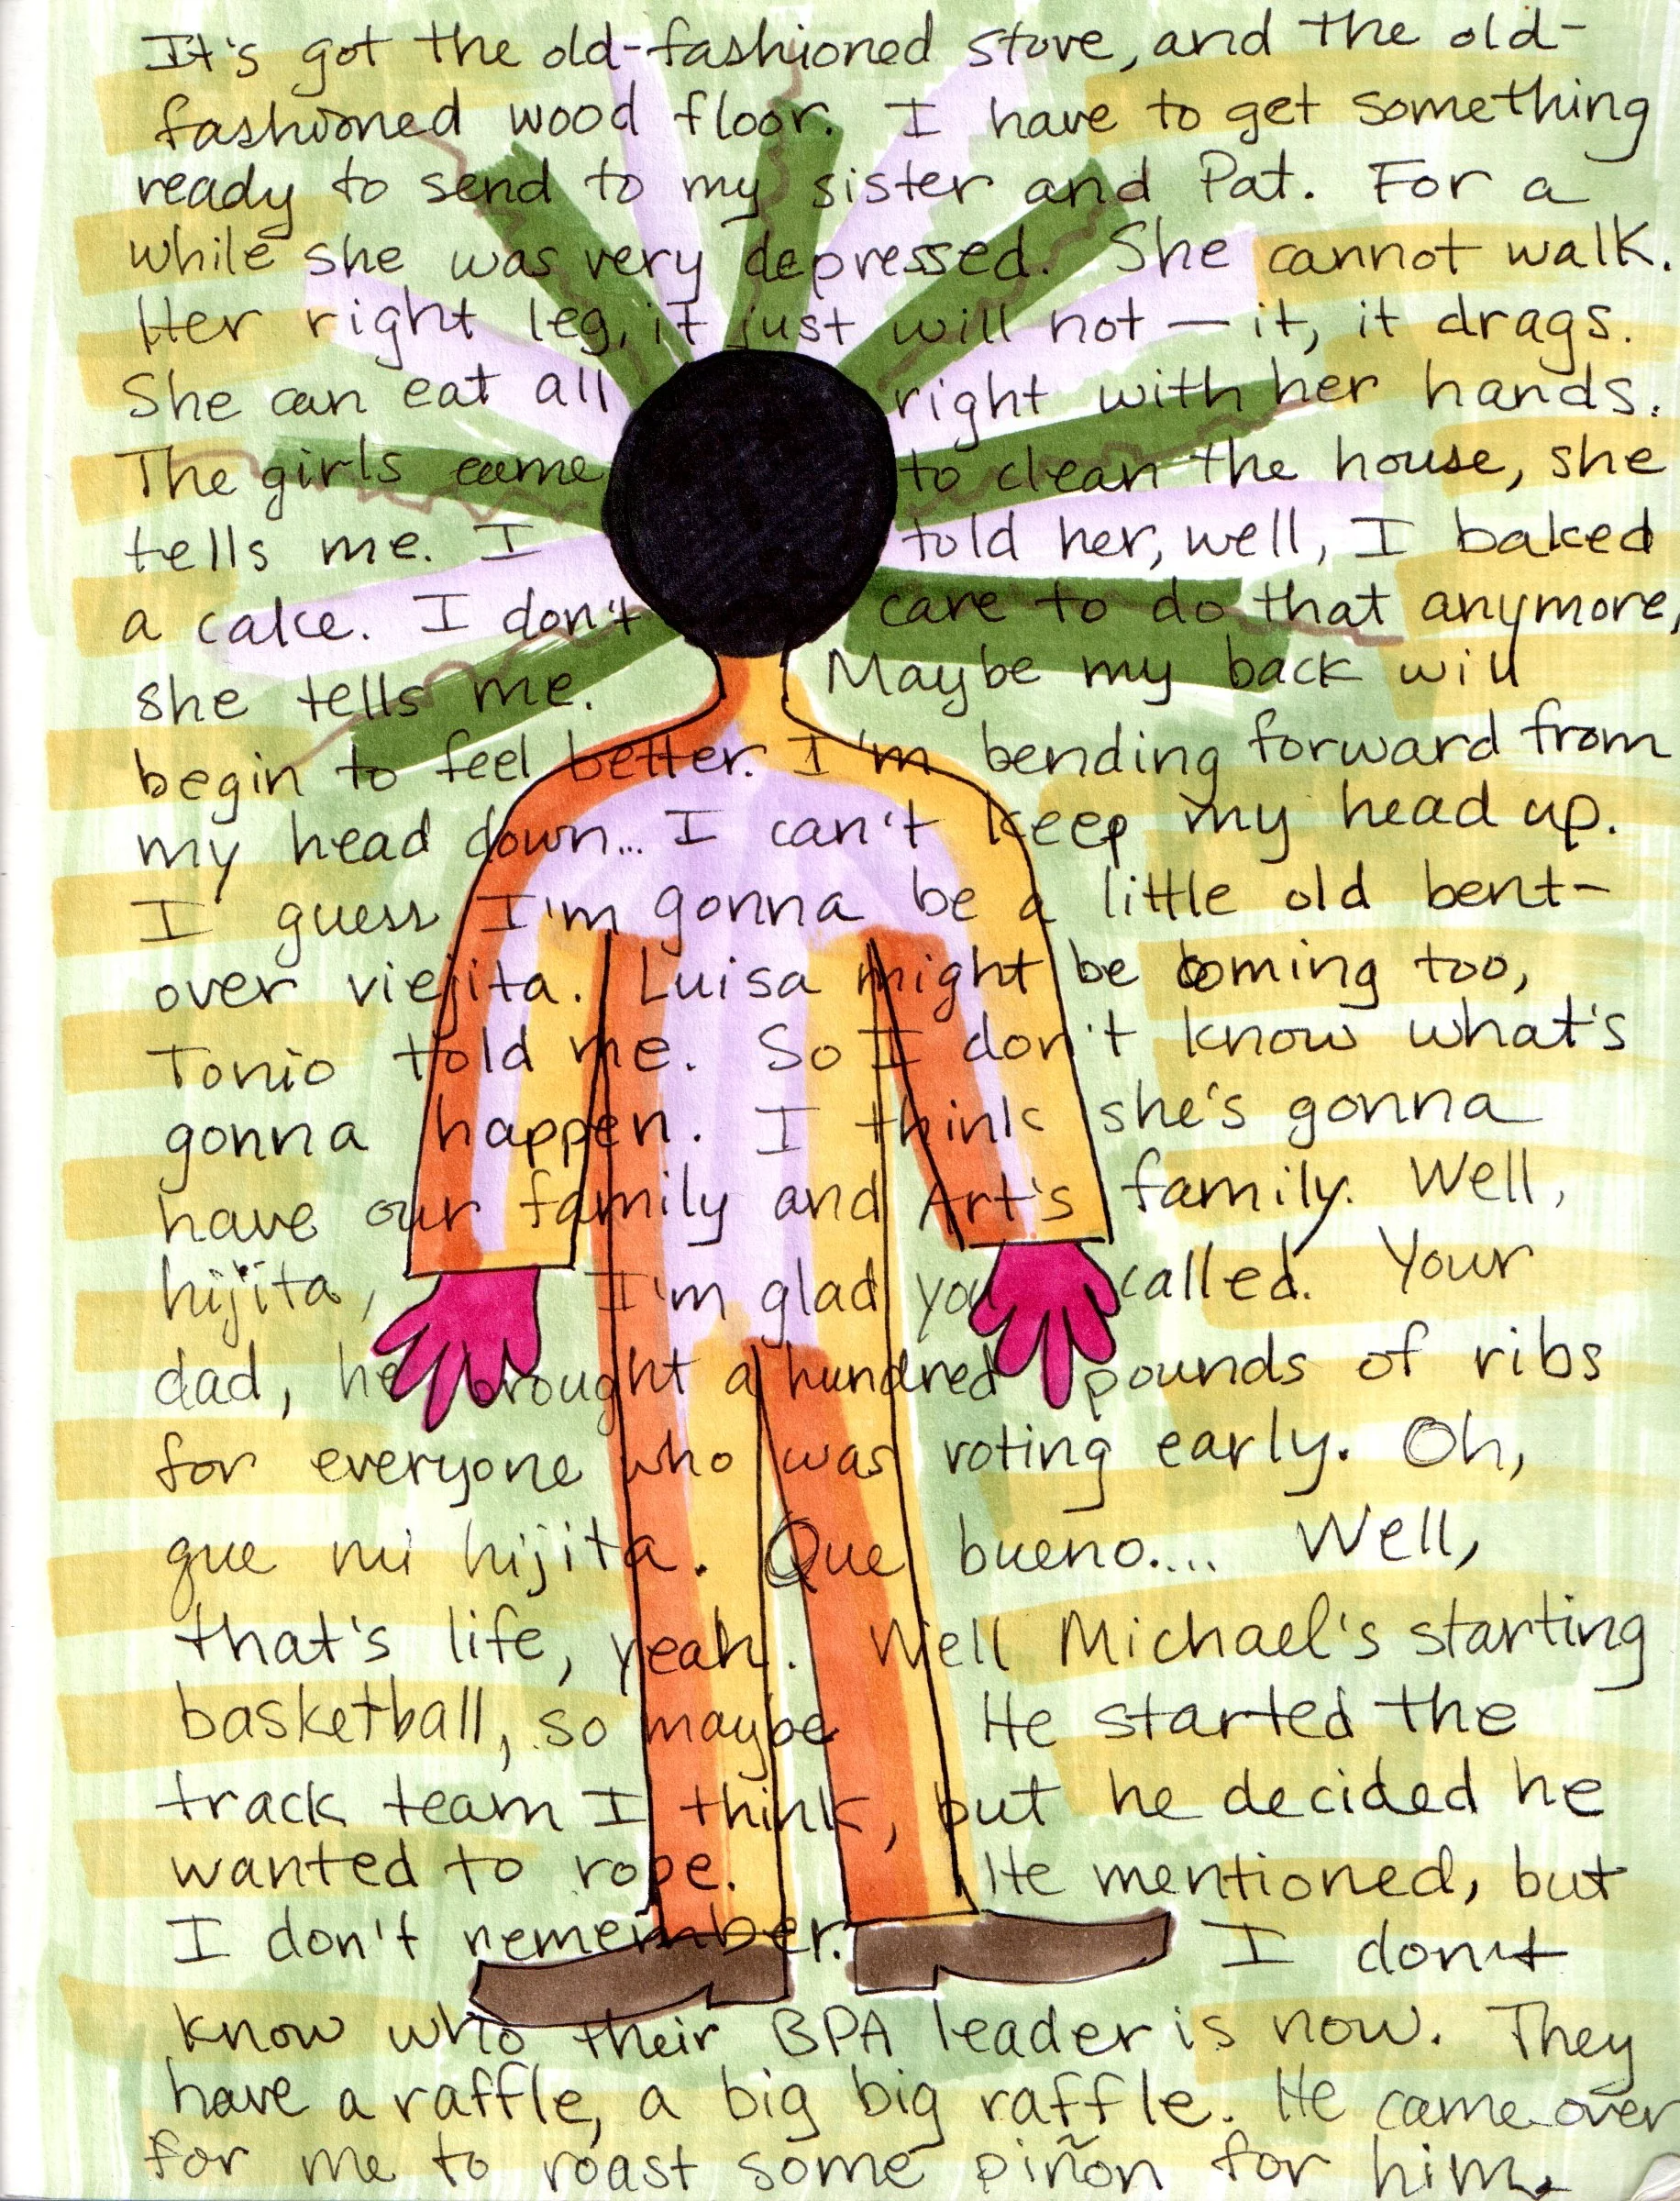 It's got the old-fashioned stove, and the old-
fashioned wood floor. I have to get something
ready to send to my sister and Pat. For a
while she was very depressed. She cannot walk.
Her right leg, it just will not — it, it drags.
She can eat all right with her hands.
The girls came to clean the house, she
tells me. I told her, well, I baked
a cake. I don't care to do that anymore,
she tells me. Maybe my back will
begin to feel better. I'm bending forward from
my head down... I can't keep my head up.
I guess I'm gonna be a little old bent-
over viejita. Luisa might be coming too,
Tonio told me. So I don't know what's
gonna happen. I think she's gonna
have our family and Art's family. Well,
hijita, I'm glad you called. Your
dad, he brought a hundred pounds of ribs
for everyone who was voting early. Oh,
que mi hijita. Que bueno.... Well,
that's life, yeah. Well Michael's starting
basketball, so maybe He started the
track team I think, but he decided he
wanted to rope. He mentioned, but
I don't remember. I don't
know who their BPA leader is now. They
have a raffle, a big big raffle. He came over
for me to roast some piñon for him.